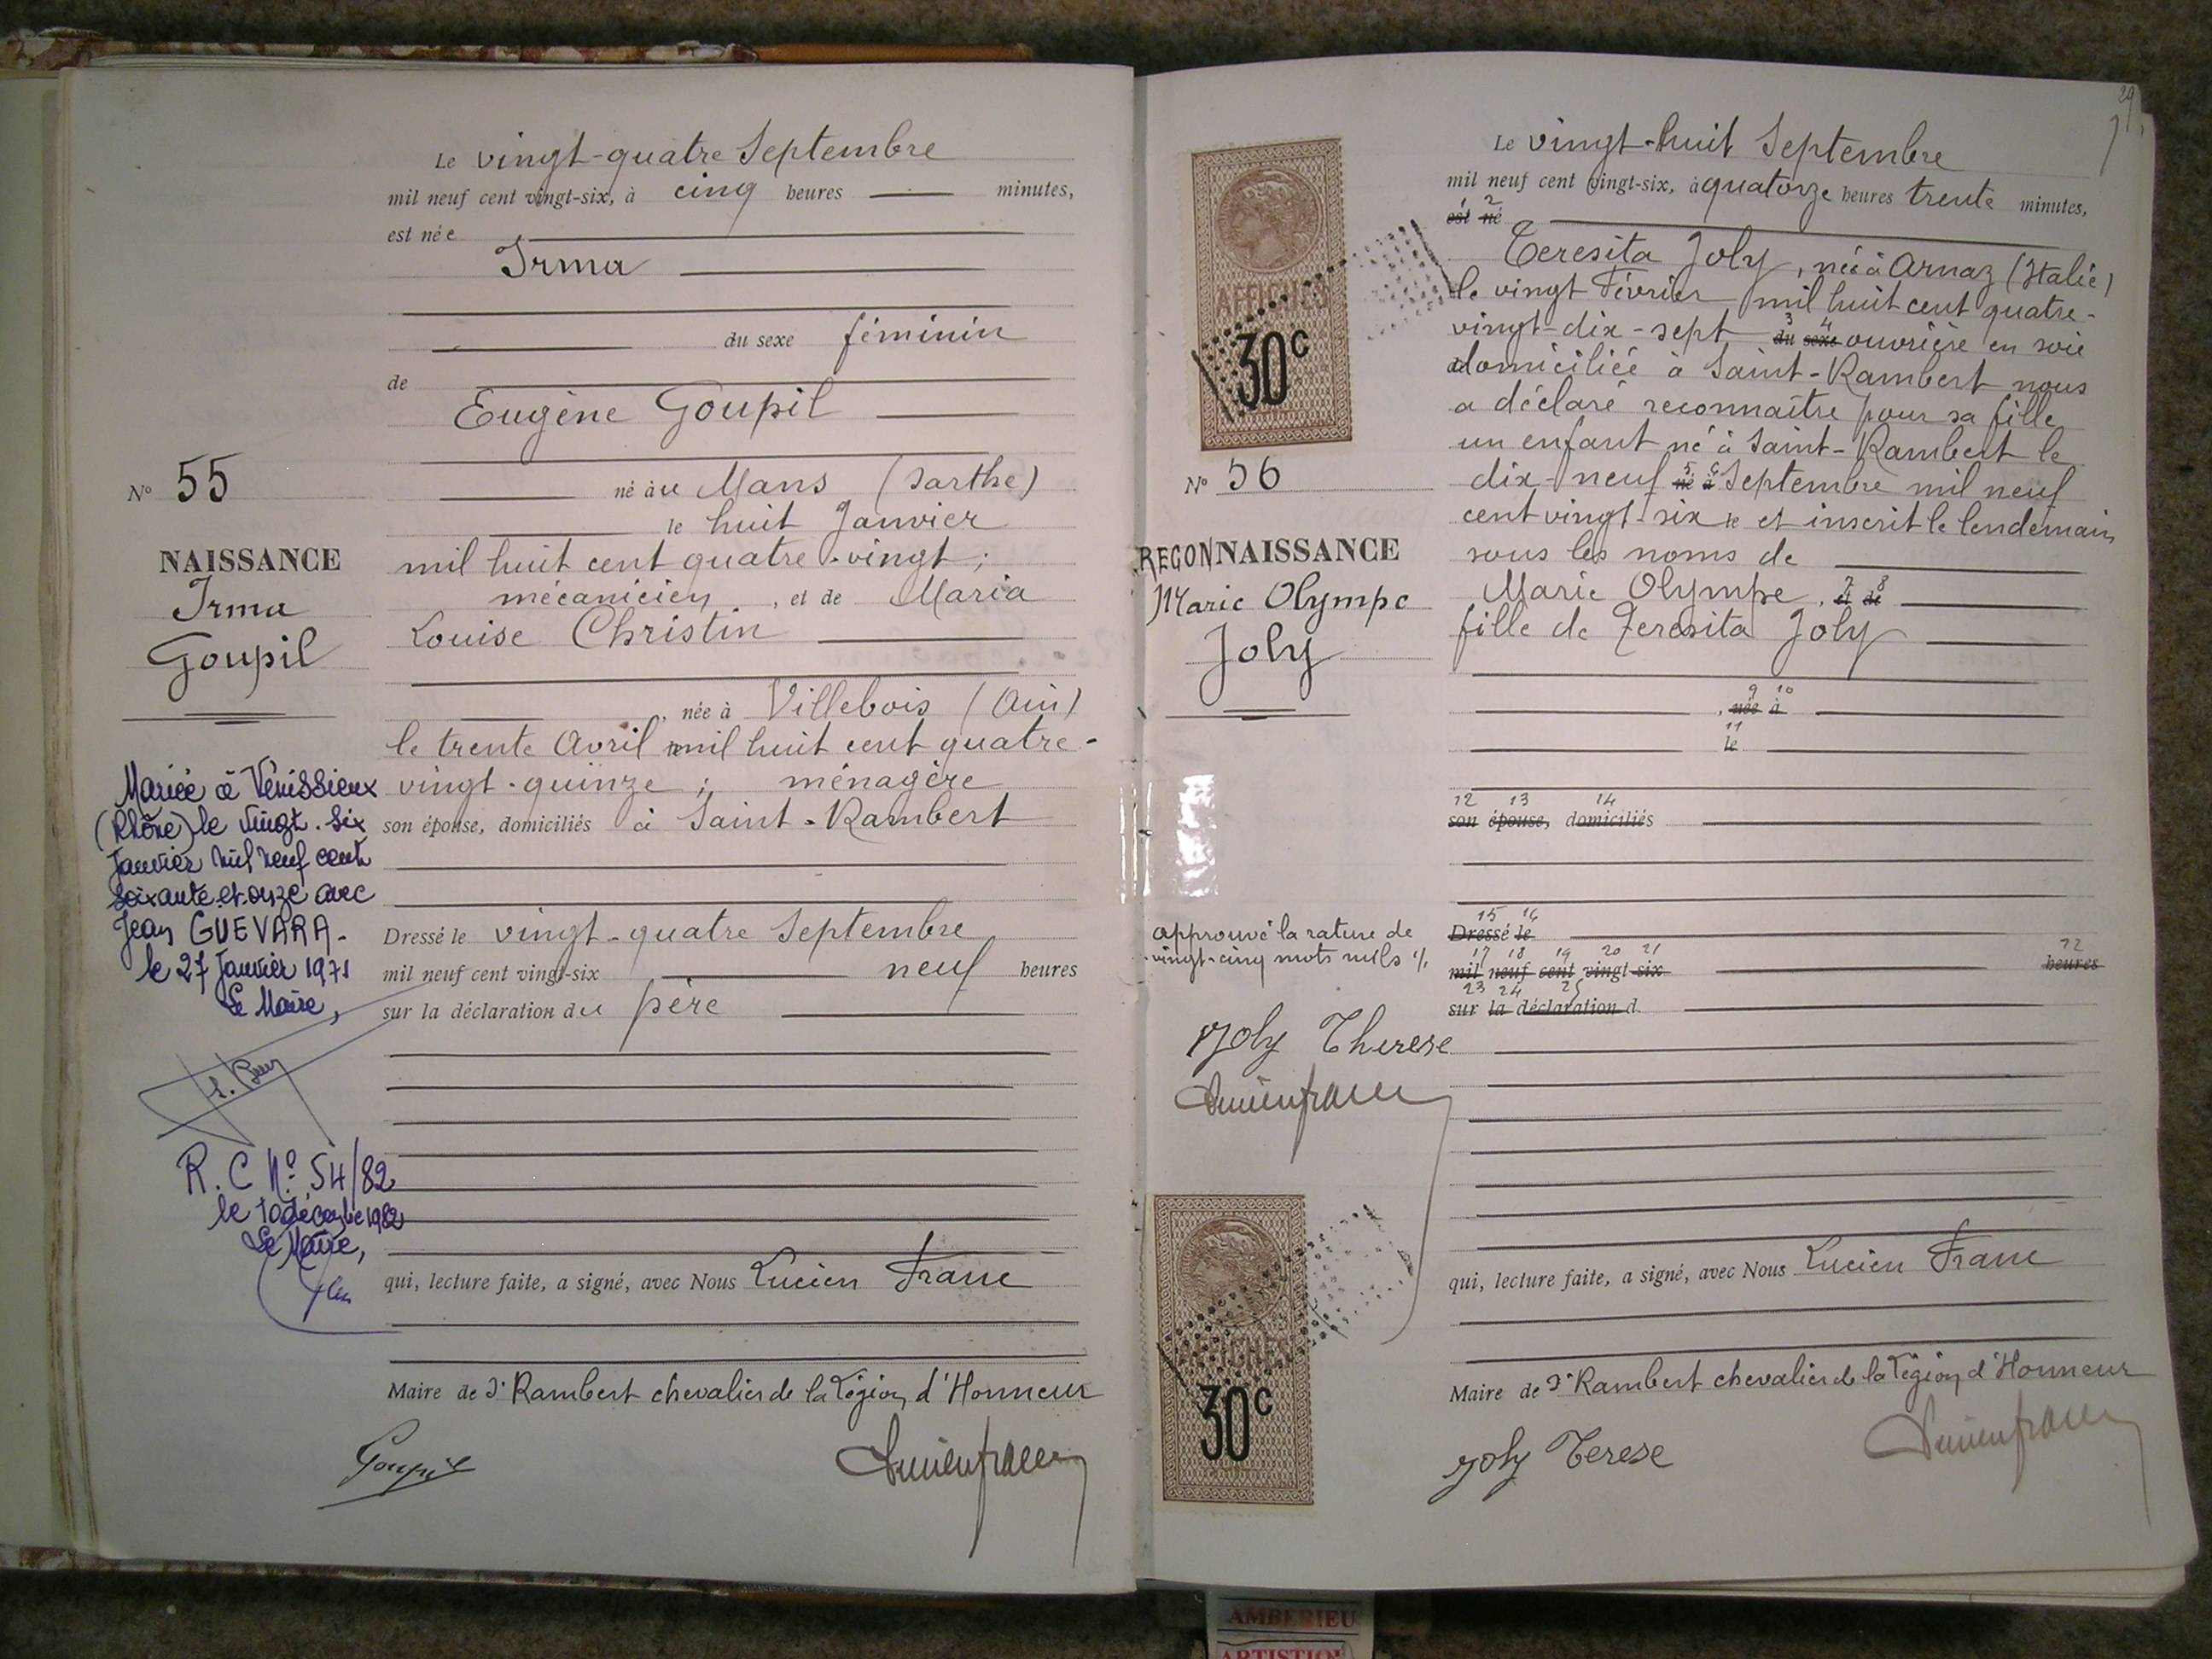 Le vingt-quatre Septembre
mil neuf cent vingt-six, à cinq heures — minutes,
est née
Irma
du sexe féminin
de
Eugène Goupil
né au Mans (Sarthe)
le huit Janvier
mil huit cent quatre-vingt ;
mécanicien, et de Maria
Louise Christin
née à Villebois (Ain)
le trente Avril mil huit cent quatre-
vingt-quinze ; ménagère
son épouse, domiciliés à Saint-Rambert
Dressé le vingt-quatre Septembre
mil neuf cent vingt-six neuf heures
sur la déclaration du père
qui, lecture faite, a signé, avec Nous Lucien Franc
Maire de St Rambert chevalier de la Légion d'Honneur
Goupil
Lucien franc
No 55
NAISSANCE
Irma
Goupil
Mariée à Vénissieux
(Rhône) le vingt-six
Janvier mil neuf cent
soixante et onze avec
Jean GUEVARA-
le 27 Janvier 1971
Le Maire,
R. C No 54/82
le 10 décembre 1982
Le Maire,
29
Le vingt-huit Septembre
mil neuf cent vingt-six, à quatorze heures trente minutes,
1 2
est né
Teresita Joly, née à Arnaz (Italie)
le vingt Février mil huit cent quatre-
3 4
vingt-dix-sept du sexe ouvrière en soie
domiciliée à Saint-Rambert nous
a déclaré reconnaître pour sa fille
un enfant né à Saint-Rambert le
5 6
dix-neuf né à Septembre mil neuf
cent vingt-six le et inscrit le lendemain
sous les noms de
7 8
Marie Olympe, et de
fille de Teresita Joly
9 10
, née à
11
le
12 13 14
son épouse, domiciliés
15 16
Dressé le
17 18 19 20 21 22
mil neuf cent vingt-six heures
23 24 25
sur la déclaration d
qui, lecture faite, a signé, avec Nous Lucien Franc
Maire de St Rambert chevalier de la Légion d'Honneur
Joly Terese
Lucien franc
AFFICHES
30c
No 56
RECONNAISSANCE
Marie Olympe
Joly
approuvé la rature de
vingt-cinq mots nuls ./.
Joly Therese
Lucien franc
AFFICHES
30c
AMBERIEU